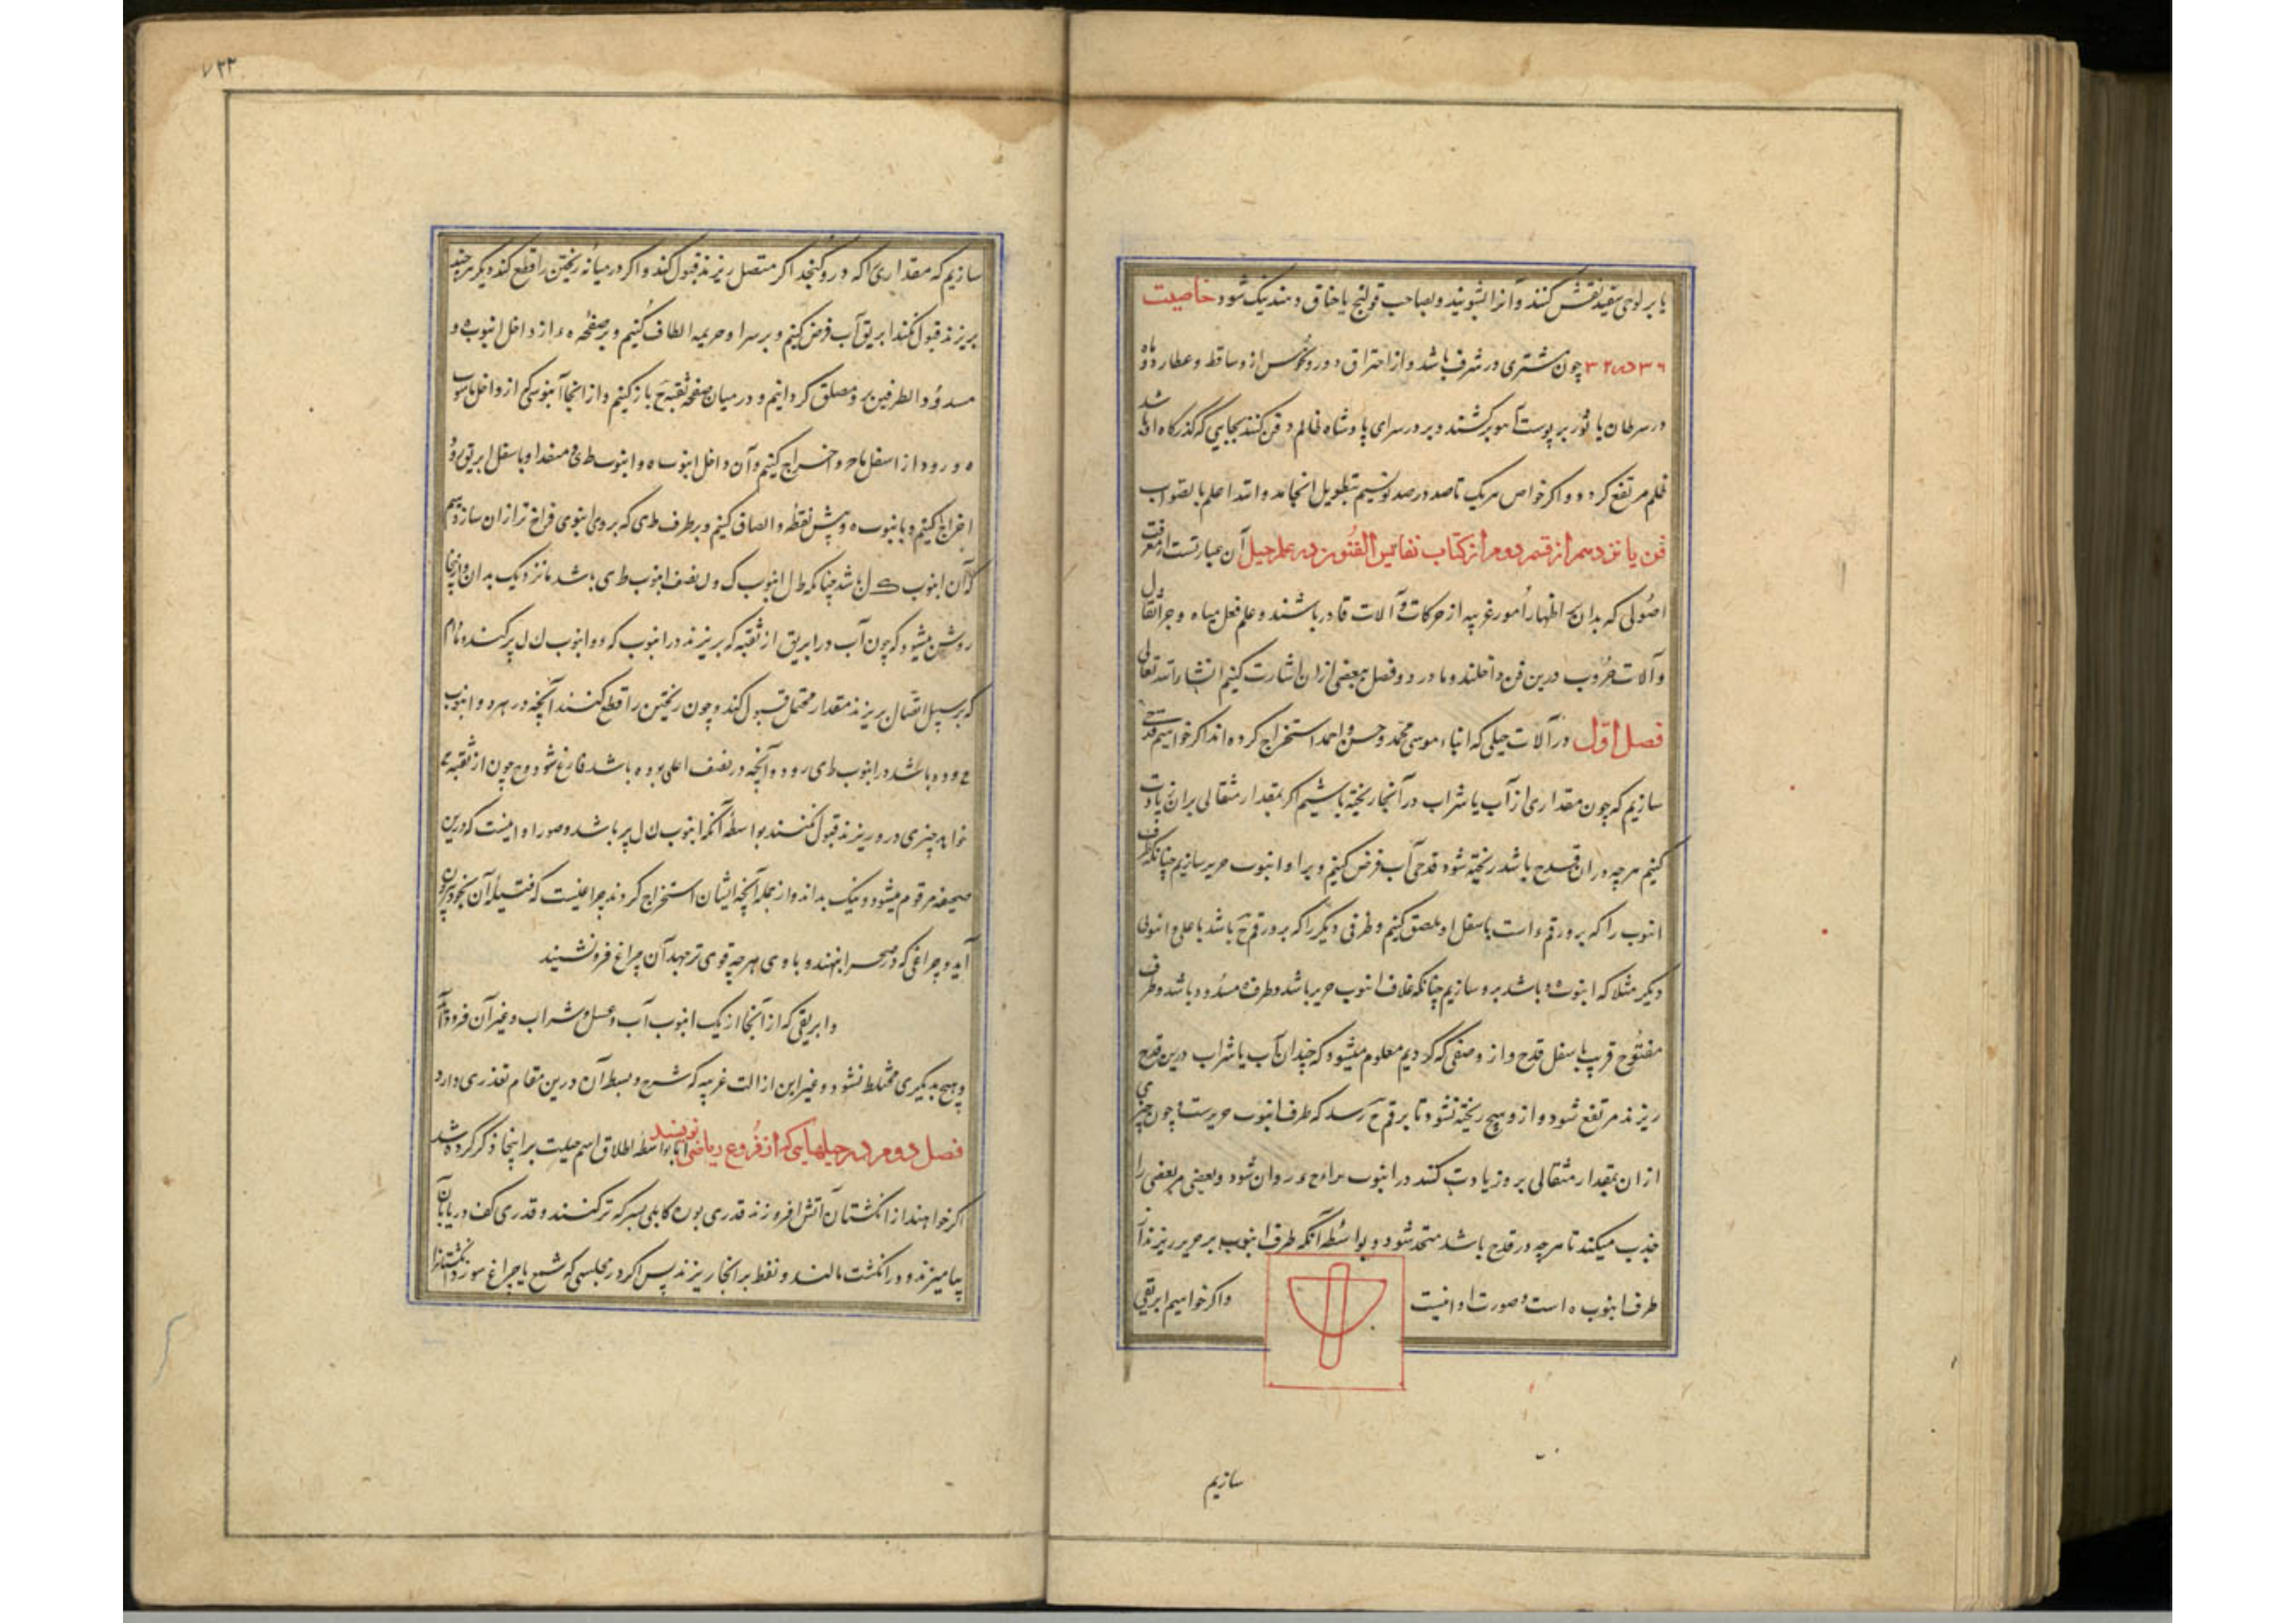 یا بر لوحی سفید نقش کنند و آنرا بشویند و بصاحب قولنج یا خناق دهند نیک شود خاصیت
۳۶ در ۳۲ چون مشتری در شرف باشد و از احتراق دور و نحوس ازو ساقط و عطارد و ماه
در سرطان یا ثور بر پوست آهو برکشند و بر در سرای پادشاه ظالم دفن کنند بجایی که گذرگاه او باشد
ظلم مرتفع گردد و اگر خواص هر یک تا صد در صد نویسیم بتطویل انجامد والله اعلم بالصواب
فن یازدهم از قسم دوم از کتاب نفایس الفنون در علم حیل آن عبارتست از معرفت
اصولی که بدان بر اظهار امور غریبه از حرکات و آلات قادر باشند و علم فعل میاه و جر اثقال
و آلات حروب درین فن داخلند و ما در دو فصل ببعضی ازان اشارت کنیم انشاء الله تعالی
فصل اول در آلات حیلی که ابناء موسی محمد و حسن و احمد استخراج کرده اند اگر خواهیم قدحی
سازیم که چون مقداری از آب یا شراب در آنجا ریخته باشیم اگر بمقدار مثقالی بران زیادت
کنیم هر چه دران قدح باشد ریخته شود قدحی آب فرض کنیم و برا و انبوب حریر سازیم چنانکه طرف
انبوب را که برو رقم ء است باسفل او ملصق کنیم و طرفی دیگر را که برو رقم ح باشد باعلی و انبوبی
دیگر مثلا که انبوب ه و باشد برو سازیم چنانکه غلاف انبوب حریر باشد و طرف ه مسدود باشد و طرف
مفتوح قریب باسفل قدح و از وصفی که کردیم معلوم میشود که چندان آب یا شراب درین قدح
ریزند مرتفع شود و ازو هیچ ریخته نشود تا برقم ح رسد که طرف انبوب حریرست و چون چیزی
ازان بمقدار مثقالی برو زیادت کنند در انبوب روان شود و بعضی مر بعضی را
جذب میکند تا هر چه در قدح باشد متحد شود و بواسطه آنکه طرف انبوب بر حریر ریزند از
طرف انبوب ه است و صورت او اینست
و اگر خواهیم ابریقی
سازیم
۷۳۳
سازیم که مقداری را که درو گنجد اگر متصل ریزند قبول کند و اگر در میانه ریختن را قطع کند دیگر هر چند
بریزند قبول نکند ابریق آب فرض کنیم و بر سر او الطاف کنیم و بر صفحه ء از داخل انبوب ه و
مسدود الطرفین برو مصلق گردانیم و در میان صفحه ثقبه ح باز کنیم و از انجا از داخل
ه و رود از اسفل اخراج کنیم و آن داخل انبوب ه و انبوب ط ی و منفد او باسفل ابریق
اخراج کنیم و بانبوب ه و پیش نقطه و الصاق کنیم و بر طرف ط ی که بر وی انبوبی فراخ تر ازان سازیم
که آن انبوب ک ل باشد چنانکه طول انبوب ک ل نصف انبوب ط ی باشد یا نزدیک بدان و اینجا
روشن میشود که چون آب در ابریق از ثقبه که بریزند در انبوب که و و انبوب ک ل پر کنند و مادام
که بر سبیل اتصال بریزند مقدار محتمل قبول کند و چون ریختن را قطع کنند آنچه در هر دو انبوب
باشد در انبوب ط ی رود و آنچه در نصف اعلی بوده باشد فارغ شود و چون از ثقبه
خواهد چیزی درو ریزند قبول نکنند بواسطه آنکه انبوب ک ل پر باشد و صورت او اینست که درین
صحیفه مرقوم میشود و نیک بداند و از جمله آنچه ایشان استخراج کردند چراغیست که فتیله آن بخود بیرون
آید و چراغی که در صحرا بنهند و باد وی هر چه قوی تر جهد آن چراغ فرو ننشیند
و ابریقی که از آنجا از یک انبوب آب و عسل و شراب و غیر آن فرود آید
و هیچ بدیگری مختلط نشود و غیر این از الت غریبه که شرح و بسط آن درین مقام تعذری دارد
فصل دوم در حیلهایی که از فروع ریاضی نویسند اما بواسطه اطلاق اسم حیلت بر اینجا ذکر کرده شد
اگر خواهند از انگشتان آتش افروزند قدری بوره کابلی بسرکه تر کنند و قدری کف دریا بآن
بیامیزند و در انگشت مالند و نفط بر انجا ریزند پس اگر در مجلسی که شمع یا چراغ سوزد انگشتانرا